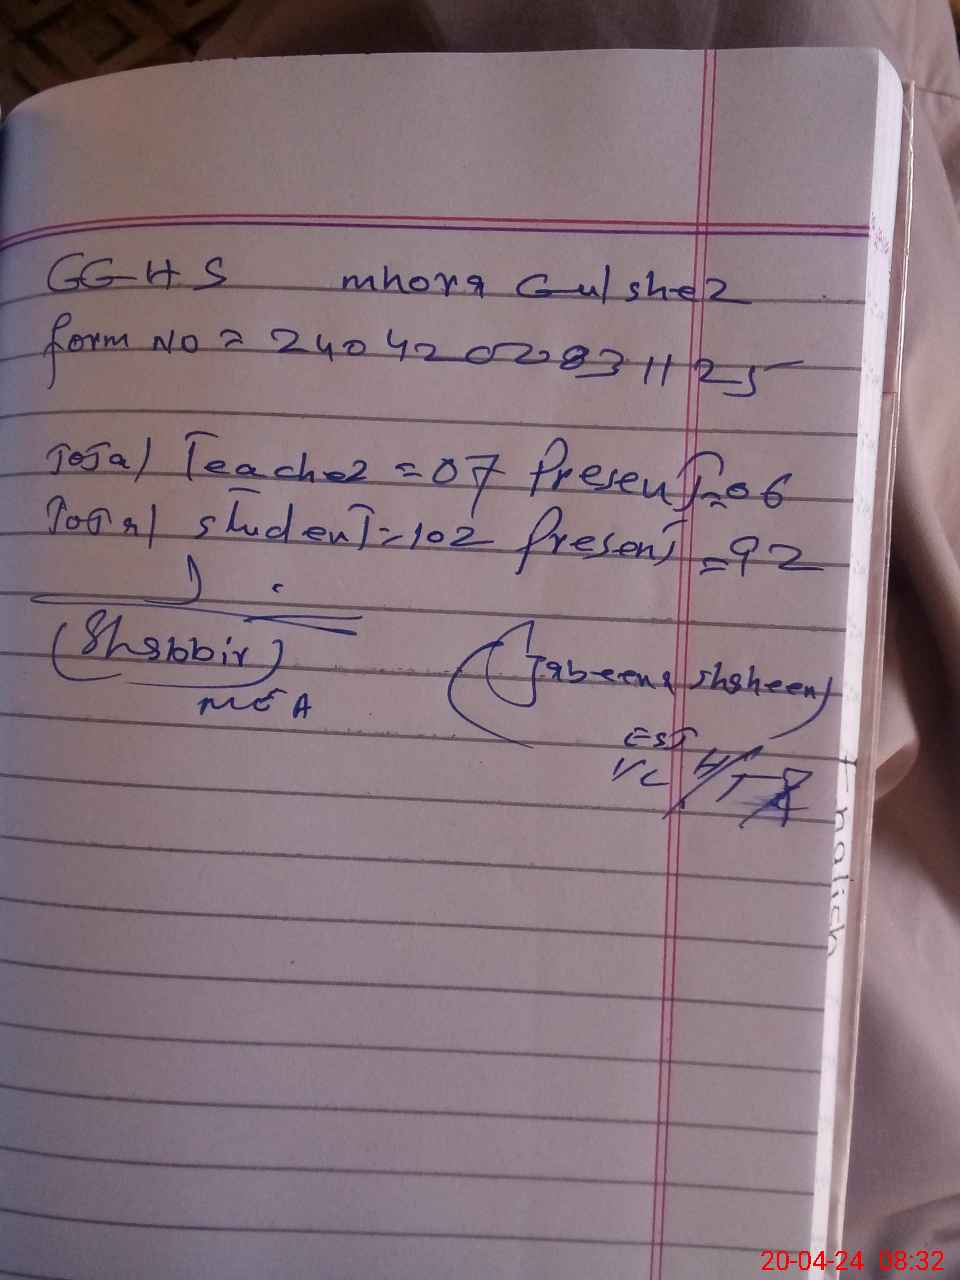 GGHS mhora Gulsher
form No = 2404202831125
Total Teacher = 07 Present = 06
Total student = 102 Present = 92
(Shabbir)
MEA
(Jabeena shaheen)
EST
English
20-04-24 08:32